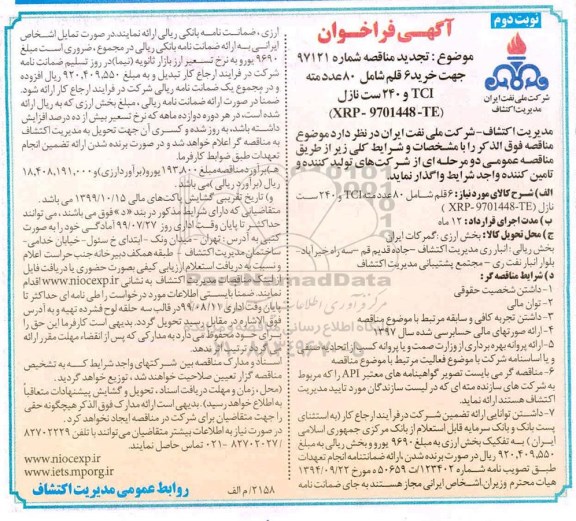 نوبت دوم
آگهی فراخوان
موضوع : تجدید مناقصه شماره ۹۷۱۲۱
جهت خرید ۶ قلم شامل ۸۰ عدد مته
TCI و ۲۴۰ ست نازل
(XRP- 9701448 -TE)
شرکت ملی نفت ایران
مدیریت اکتشاف
مدیریت اکتشاف- شرکت ملی نفت ایران در نظر دارد موضوع
مناقصه فوق الذکر را با مشخصات و شرایط کلی زیر از طریق
مناقصه عمومی دو مرحله ای از شرکت های تولید کننده و
تامین کننده واجد شرایط واگذار نماید.
الف) شرح کالای مورد نیاز: ۶ قلم شامل ۸۰ عدد مته TCI و ۲۴۰ ست
نازل (XRP- 9701448-TE)
ب) مدت اجرای قرارداد: ۱۲ ماه
ج) محل تحویل کالا: بخش ارزی : گمرکات ایران
بخش ریالی : انبار ری مدیریت اکتشاف -جاده قدیم قم -سه راه خیرآباد-
بلوار انبار نفت ری - مجتمع پشتیبانی مدیریت اکتشاف
د) شرایط مناقصه گر:
۱-داشتن شخصیت حقوقی
۲- توان مالی
۳- داشتن تجربه کافی و سابقه مرتبط با موضوع مناقصه
۴- ارائه صورتهای مالی حسابرسی شده سال ۱۳۹۷
۵- ارائه پروانه بهره برداری از وزارت صمت و یا پروانه کسب از اتحادیه صنفی
و یا اساسنامه شرکت با موضوع فعالیت مرتبط با موضوع مناقصه
۶- مناقصه گر می بایست تصویر گواهینامه های معتبر API را که مربوط
به شرکت های سازنده مته ای که در لیست سازندگان مورد تایید مدیریت
اکتشاف هستند ارائه نماید.
۷- داشتن توانایی ارائه تضمین شرکت در فرآیند ارجاع کار (به استثنای
پست بانک و بانک سرمایه قابل استعلام از بانک مرکزی جمهوری اسلامی
ایران) به تفکیک بخش ارزی به مبلغ ۹۶۹۰ یورو و بخش ریالی به مبلغ
۹۲۰,۴۰۹,۵۵۰ ریال در صورت برنده شدن، ارائه ضمانتنامه انجام تعهدات
طبق تصویب نامه شماره ۱۲۳۴۰۲/ت۵۰۶۵۹ ه مورخ ۱۳۹۴/۰۹/۲۲
هیات محترم وزیران، اشخاص ایرانی مجاز هستند به جای ضمانت نامه
ارزی، ضمانت نامه بانکی ریالی ارائه نمایند. در صورت تمایل اشخاص
ایرانی به ارائه ضمانت نامه بانکی ریالی در مجموع، ضروری است مبلغ
۹۶۹۰ یورو به نرخ تسعیر ارز بازار ثانویه (نیما) در روز تسلیم ضمانت نامه
شرکت در فرایند ارجاع کار تبدیل و به مبلغ ۹۲۰,۴۰۹,۵۵۰ ریال افزوده
و در مجموع یک ضمانت نامه ریالی شرکت در فرایند ارجاع کار ارائه شود.
ضمنا در صورت ارائه ضمانت نامه ریالی ، مبلغ بخش ارزی که به ریال ارائه
شده است، در هر دوره دوازده ماهه که نرخ تسعیر بیش از ده درصد افزایش
داشته باشد، به روز شده و کسری آن جهت تحویل به مدیریت اکتشاف
به مناقصه گر اعلام خواهد شد و در صورت برنده شدن ارائه تضمین انجام
تعهدات طبق ضوابط کارفرما.
هـ) برآورد مناقصه مبلغ ۱۹۳,۸۰۰ یورو (برآورد ارزی) و ۱۸,۴۰۸,۱۹۱,۰۰۰
ریال (برآورد ریالی) می باشد.
و) تاریخ تقریبی گشایش پاکت های مالی ۱۳۹۹/۱۰/۱۵ می باشد.
متقاضیانی که دارای شرایط مذکور در بند «د» فوق می باشند، می توانند
حداکثر تا پایان وقت اداری روز ۹۹/۰۷/۲۷ آمادگی خود را به صورت
کتبی به آدرس : تهران - میدان ونک - ابتدای خ سئول - خیابان خدامی-
ساختمان مدیریت اکتشاف - طبقه همکف دبیرخانه جنب حراست اعلام
و نسبت به دریافت استعلام ارزیابی کیفی بصورت حضوری یا دریافت فایل
از لینک مناقصات مدیریت اکتشاف به نشانی www.niocexp.ir اقدام
نمایند. ضمنا بایستی اطلاعات مورد درخواست را طی نامه ای حداکثر تا
پایان وقت اداری ۹۹/۰۸/۱۱ در قالب سه حلقه لوح فشرده تهیه و به آدرس
فوق الاشاره در مقابل رسید تحویل گردد. بدیهی است کارفرما این حق را
برای خود محفوظ می دارد به مدارکی که پس از انقضاء مهلت مقرر ارائه
اسناد و مدارک مناقصه بین شرکتهای واجد شرایط که به تشخیص
مناقصه گزار تعیین صلاحیت خواهند شد ، توزیع خواهد گردید.
(محل، زمان و مهلت دریافت اسناد، تحویل و گشایش پیشنهادات متعاقباً
به اطلاع خواهد رسید). بدیهی است ارائه مدارک فوق الذکر هیچگونه حقی
را جهت متقاضیان برای شرکت در مناقصه ایجاد نخواهد کرد.
در صورت نیاز به اطلاعات بیشتر متقاضیان می توانند با تلفن ۸۲۷۰۲۲۲۹
۰۲۱-۸۲۷۰۲۰۲۷/ تماس حاصل نمایند.
www.niocexp.ir
www.iets.mporg.ir
۲۱۵۸/ م الف
روابط عمومی مدیریت اکتشاف